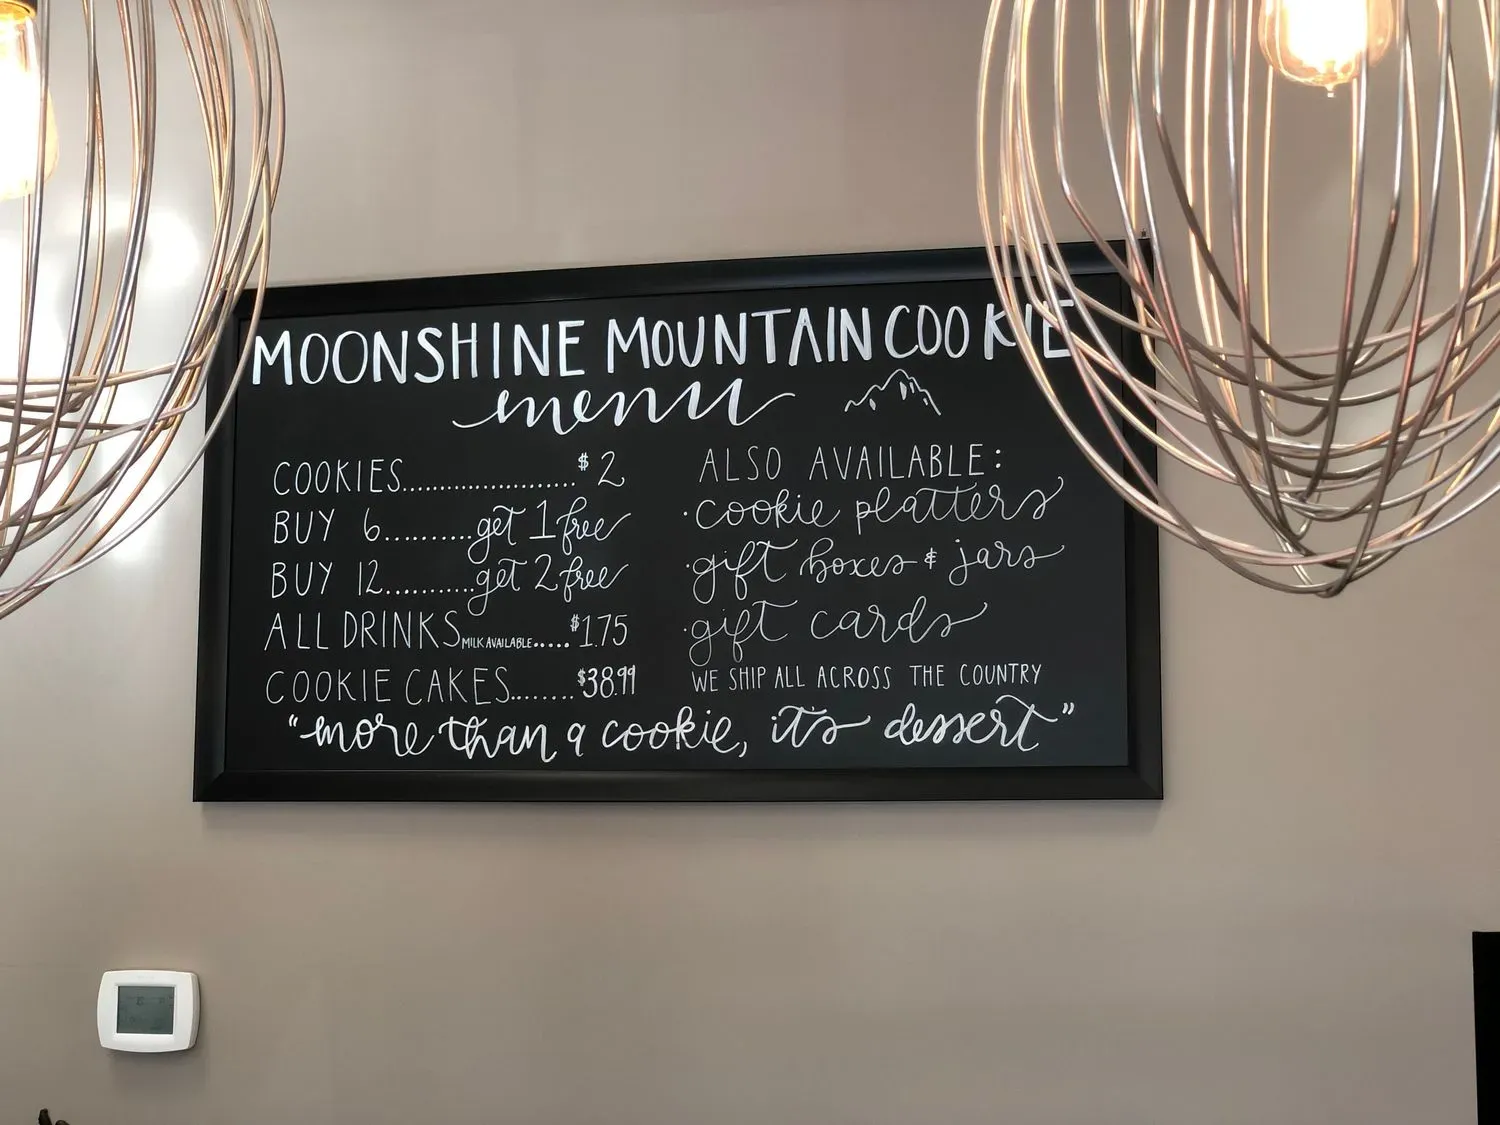 MOONSHINE MOUNTAIN COOKIE
menu
COOKIES......................$2
BUY 6..........get 1 free
BUY 12...........get 2 free
ALL DRINKS MILK AVAILABLE.....$1.75
COOKIE CAKES........$38.99
ALSO AVAILABLE:
·cookie platters
·gift boxes & jars
·gift cards
WE SHIP ALL ACROSS THE COUNTRY
"more than a cookie, it's dessert"